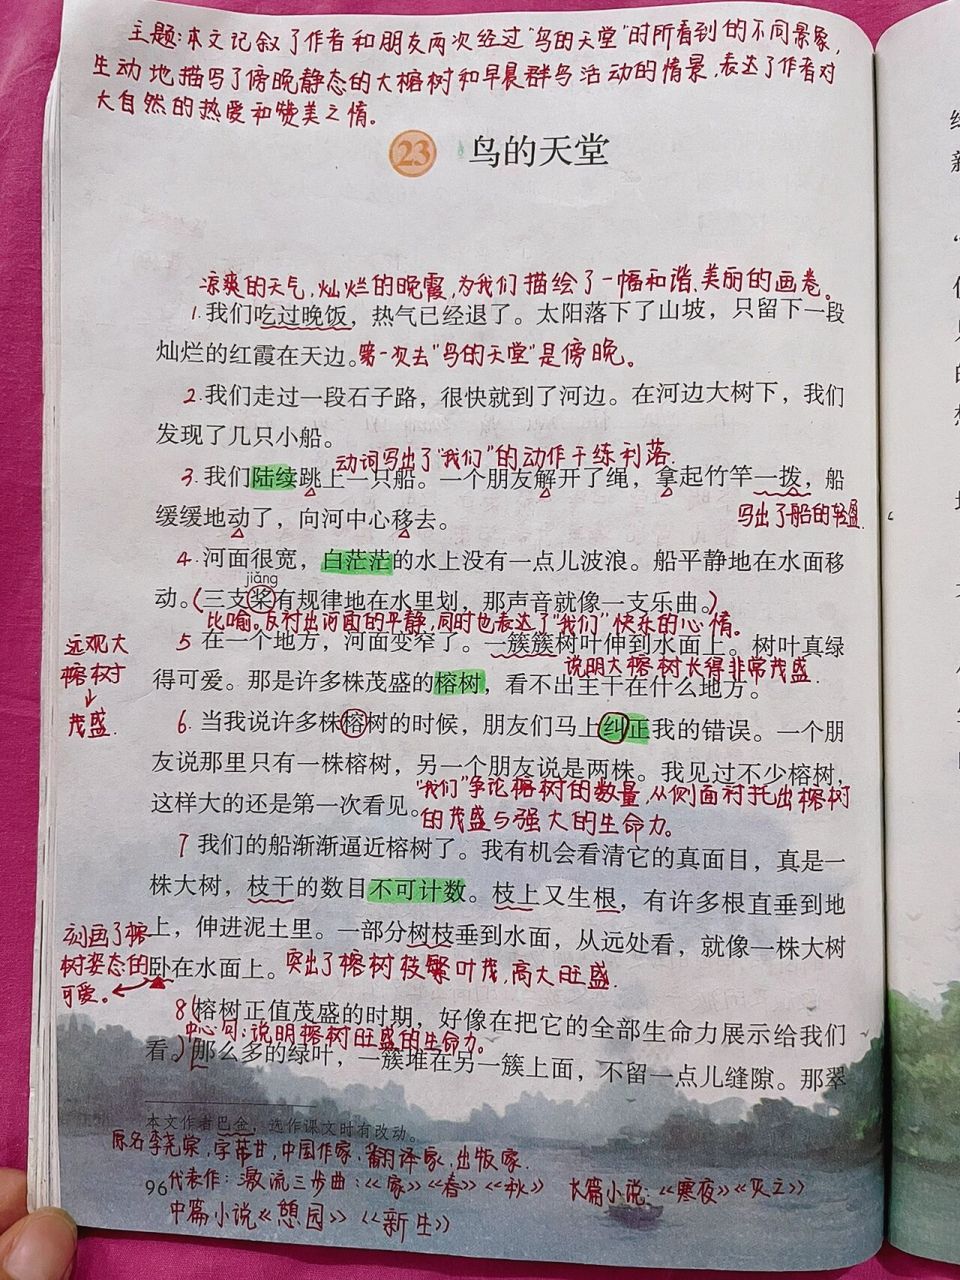 主题:本文记叙了作者和朋友两次经过"鸟的天堂"时所看到的不同景象,
生动地描写了傍晚静态的大榕树和早晨群鸟活动的情景,表达了作者对
大自然的热爱和赞美之情。
23 鸟的天堂
凉爽的天气,灿烂的晚霞,为我们描绘了一幅和谐、美丽的画卷。
1.我们吃过晚饭,热气已经退了。太阳落下了山坡,只留下一段
灿烂的红霞在天边。第一次去"鸟的天堂"是傍晚。
2.我们走过一段石子路,很快就到了河边。在河边大树下,我们
发现了几只小船。
动词写出了"我们"的动作干练利落.
3.我们陆续跳上一只船。一个朋友解开了绳,拿起竹竿一拨,船
缓缓地动了,向河中心移去。
写出了船的轻盈.
4.河面很宽,白茫茫的水上没有一点儿波浪。船平静地在水面移
jiǎng
动。(三支桨有规律地在水里划,那声音就像一支乐曲。)
比喻。反衬出河面的平静,同时也表达了"我们"快乐的心情。
5 在一个地方,河面变窄了。一簇簇树叶伸到水面上。树叶真绿
说明大榕树长得非常茂盛.
得可爱。那是许多株茂盛的榕树,看不出主干在什么地方。
远观大
榕树寸
茂盛.
6.当我说许多株榕树的时候,朋友们马上纠正我的错误。一个朋
友说那里只有一株榕树,另一个朋友说是两株。我见过不少榕树,
这样大的还是第一次看见。
"我们"争论榕树的数量,从侧面衬托出榕树
的茂盛与强大的生命力。
7 我们的船渐渐逼近榕树了。我有机会看清它的真面目,真是一
株大树,枝干的数目不可计数。枝上又生根,有许多根直垂到地
上,伸进泥土里。一部分树枝垂到水面,从远处看,就像一株大树
卧在水面上。突出了榕树枝繁叶茂,高大旺盛.
刻画了榕
树姿态的
可爱。
8(榕树正值茂盛的时期,好像在把它的全部生命力展示给我们
中心句:说明榕树旺盛的生命力。
看。)那么多的绿叶,一簇堆在另一簇上面,不留一点儿缝隙。那翠
本文作者巴金,选作课文时有改动。
原名李尧棠,字芾甘,中国作家、翻译家,出版家.
96
代表作:激流三步曲:《家》《春》《秋》 长篇小说:《寒夜》《灭亡》
中篇小说《憩园》《新生》